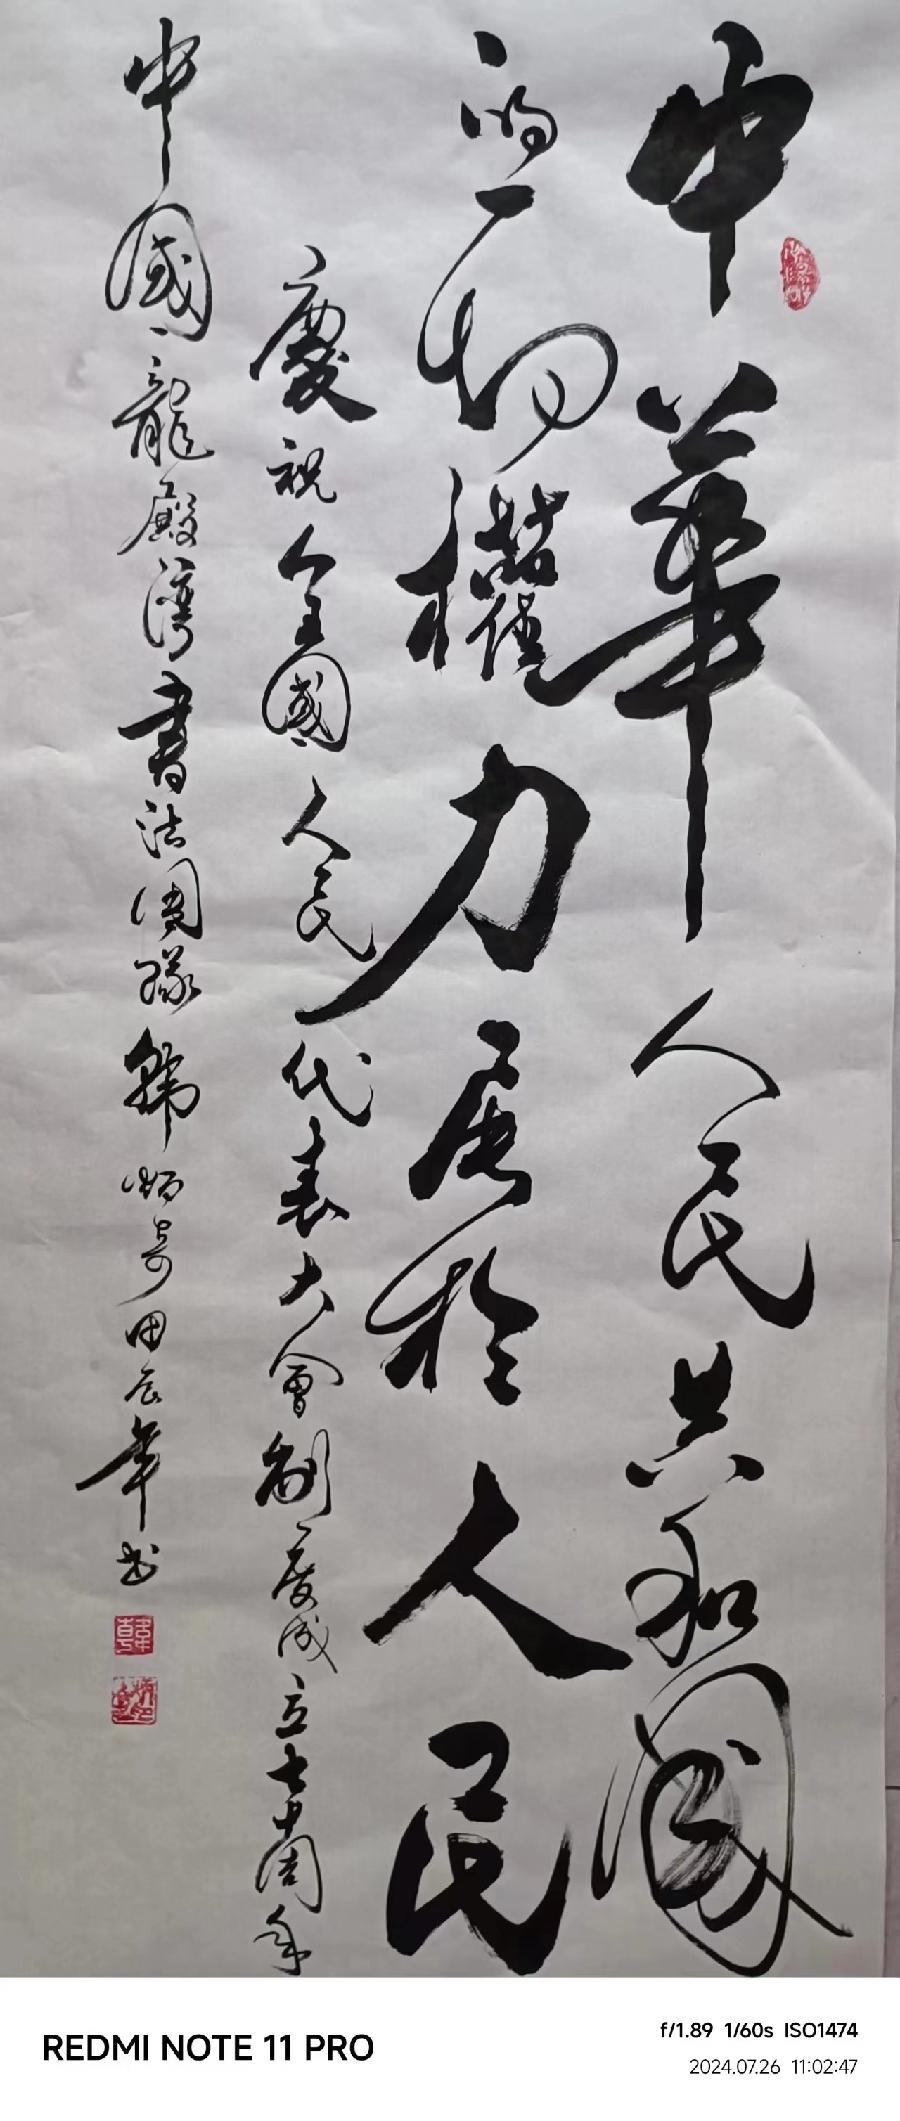 中華人民共和國
的一切權力屬於人民
慶祝全國人民代表大會制度成立七十周年
中國龍殿灣書法團隊韩炳奇甲辰年书
REDMI NOTE 11 PRO
f/1.89 1/60s ISO1474
2024.07.26 11:02:47